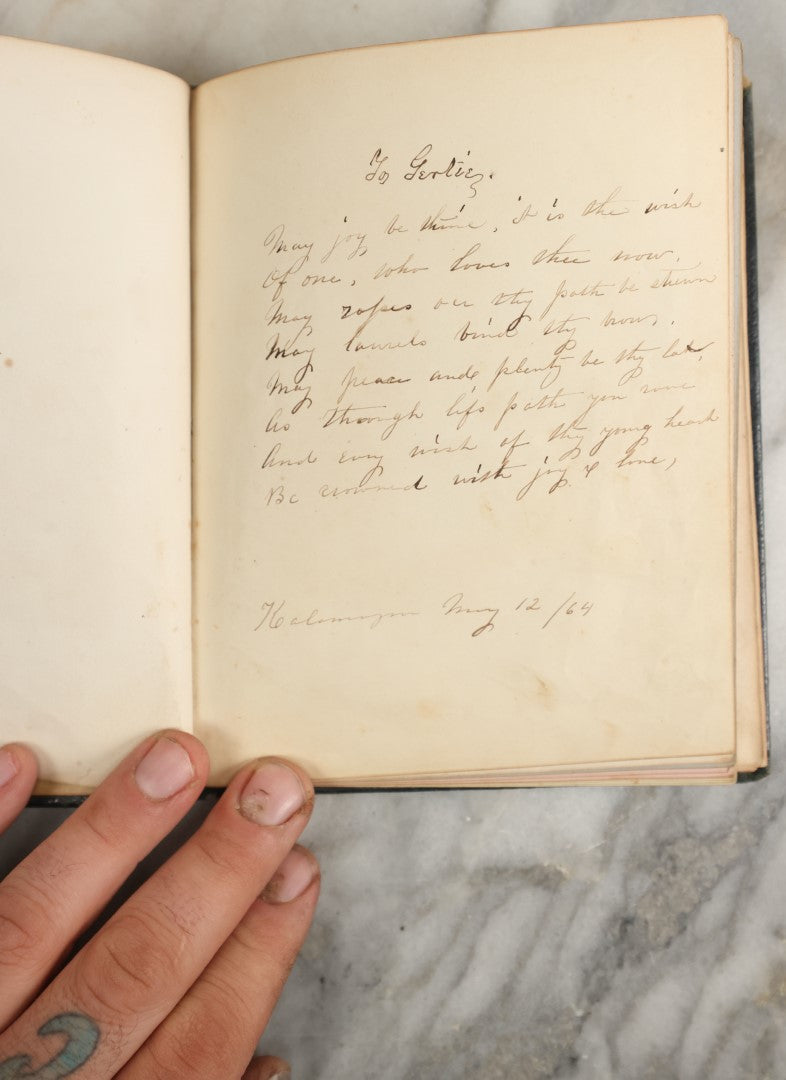 To Gertie.
May joy be thine, it is the wish
Of one, who loves thee now.
May roses on thy path be strewn
May laurels bind thy brow,.
May peace and plenty be thy lot,
As through life path you rove
And every wish of thy young heart
Be crowned with joy & love,
Kalamazoo May 12 /64